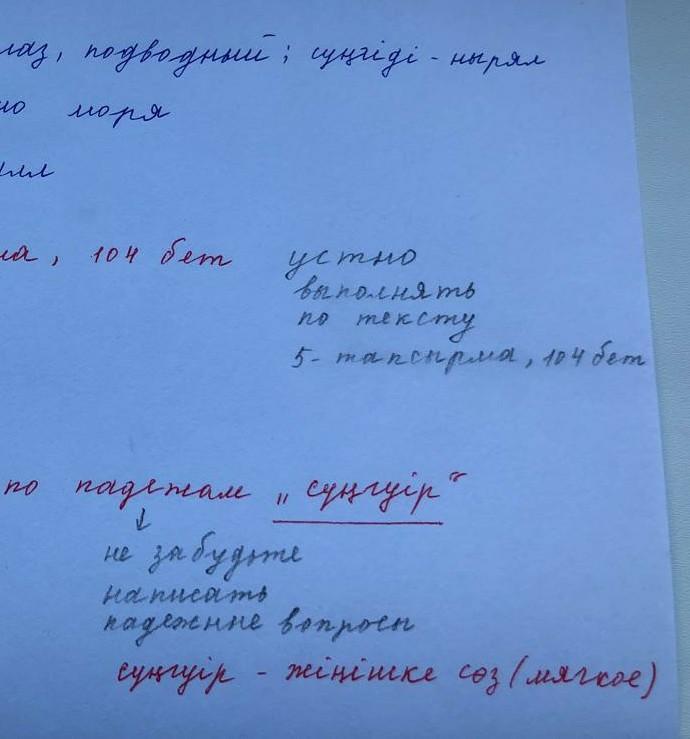 лаз, подводный; сүңгіді - нырял
но моря
лл
ма, 104 бет устно
выполнять
по тексту
5- тапсырма, 104 бет
по падежам „сүңгуір“
не забудьте
написать
падежные вопросы
сүңгуір - жіңішке сөз (мягкое)